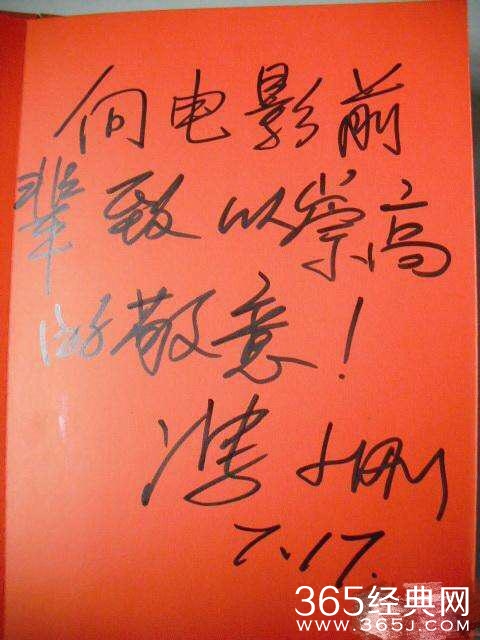 向电影前
辈致以崇高
的敬意！
冯小刚
7.17.
365经典网
www.365J.com